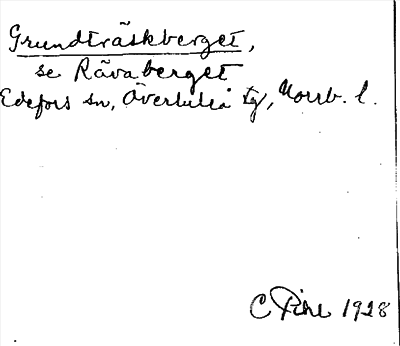 Grundträskberget,
se Råvaberget
Edefors sn, Överluleå tg, Norrb. l.
C Pihl 1928